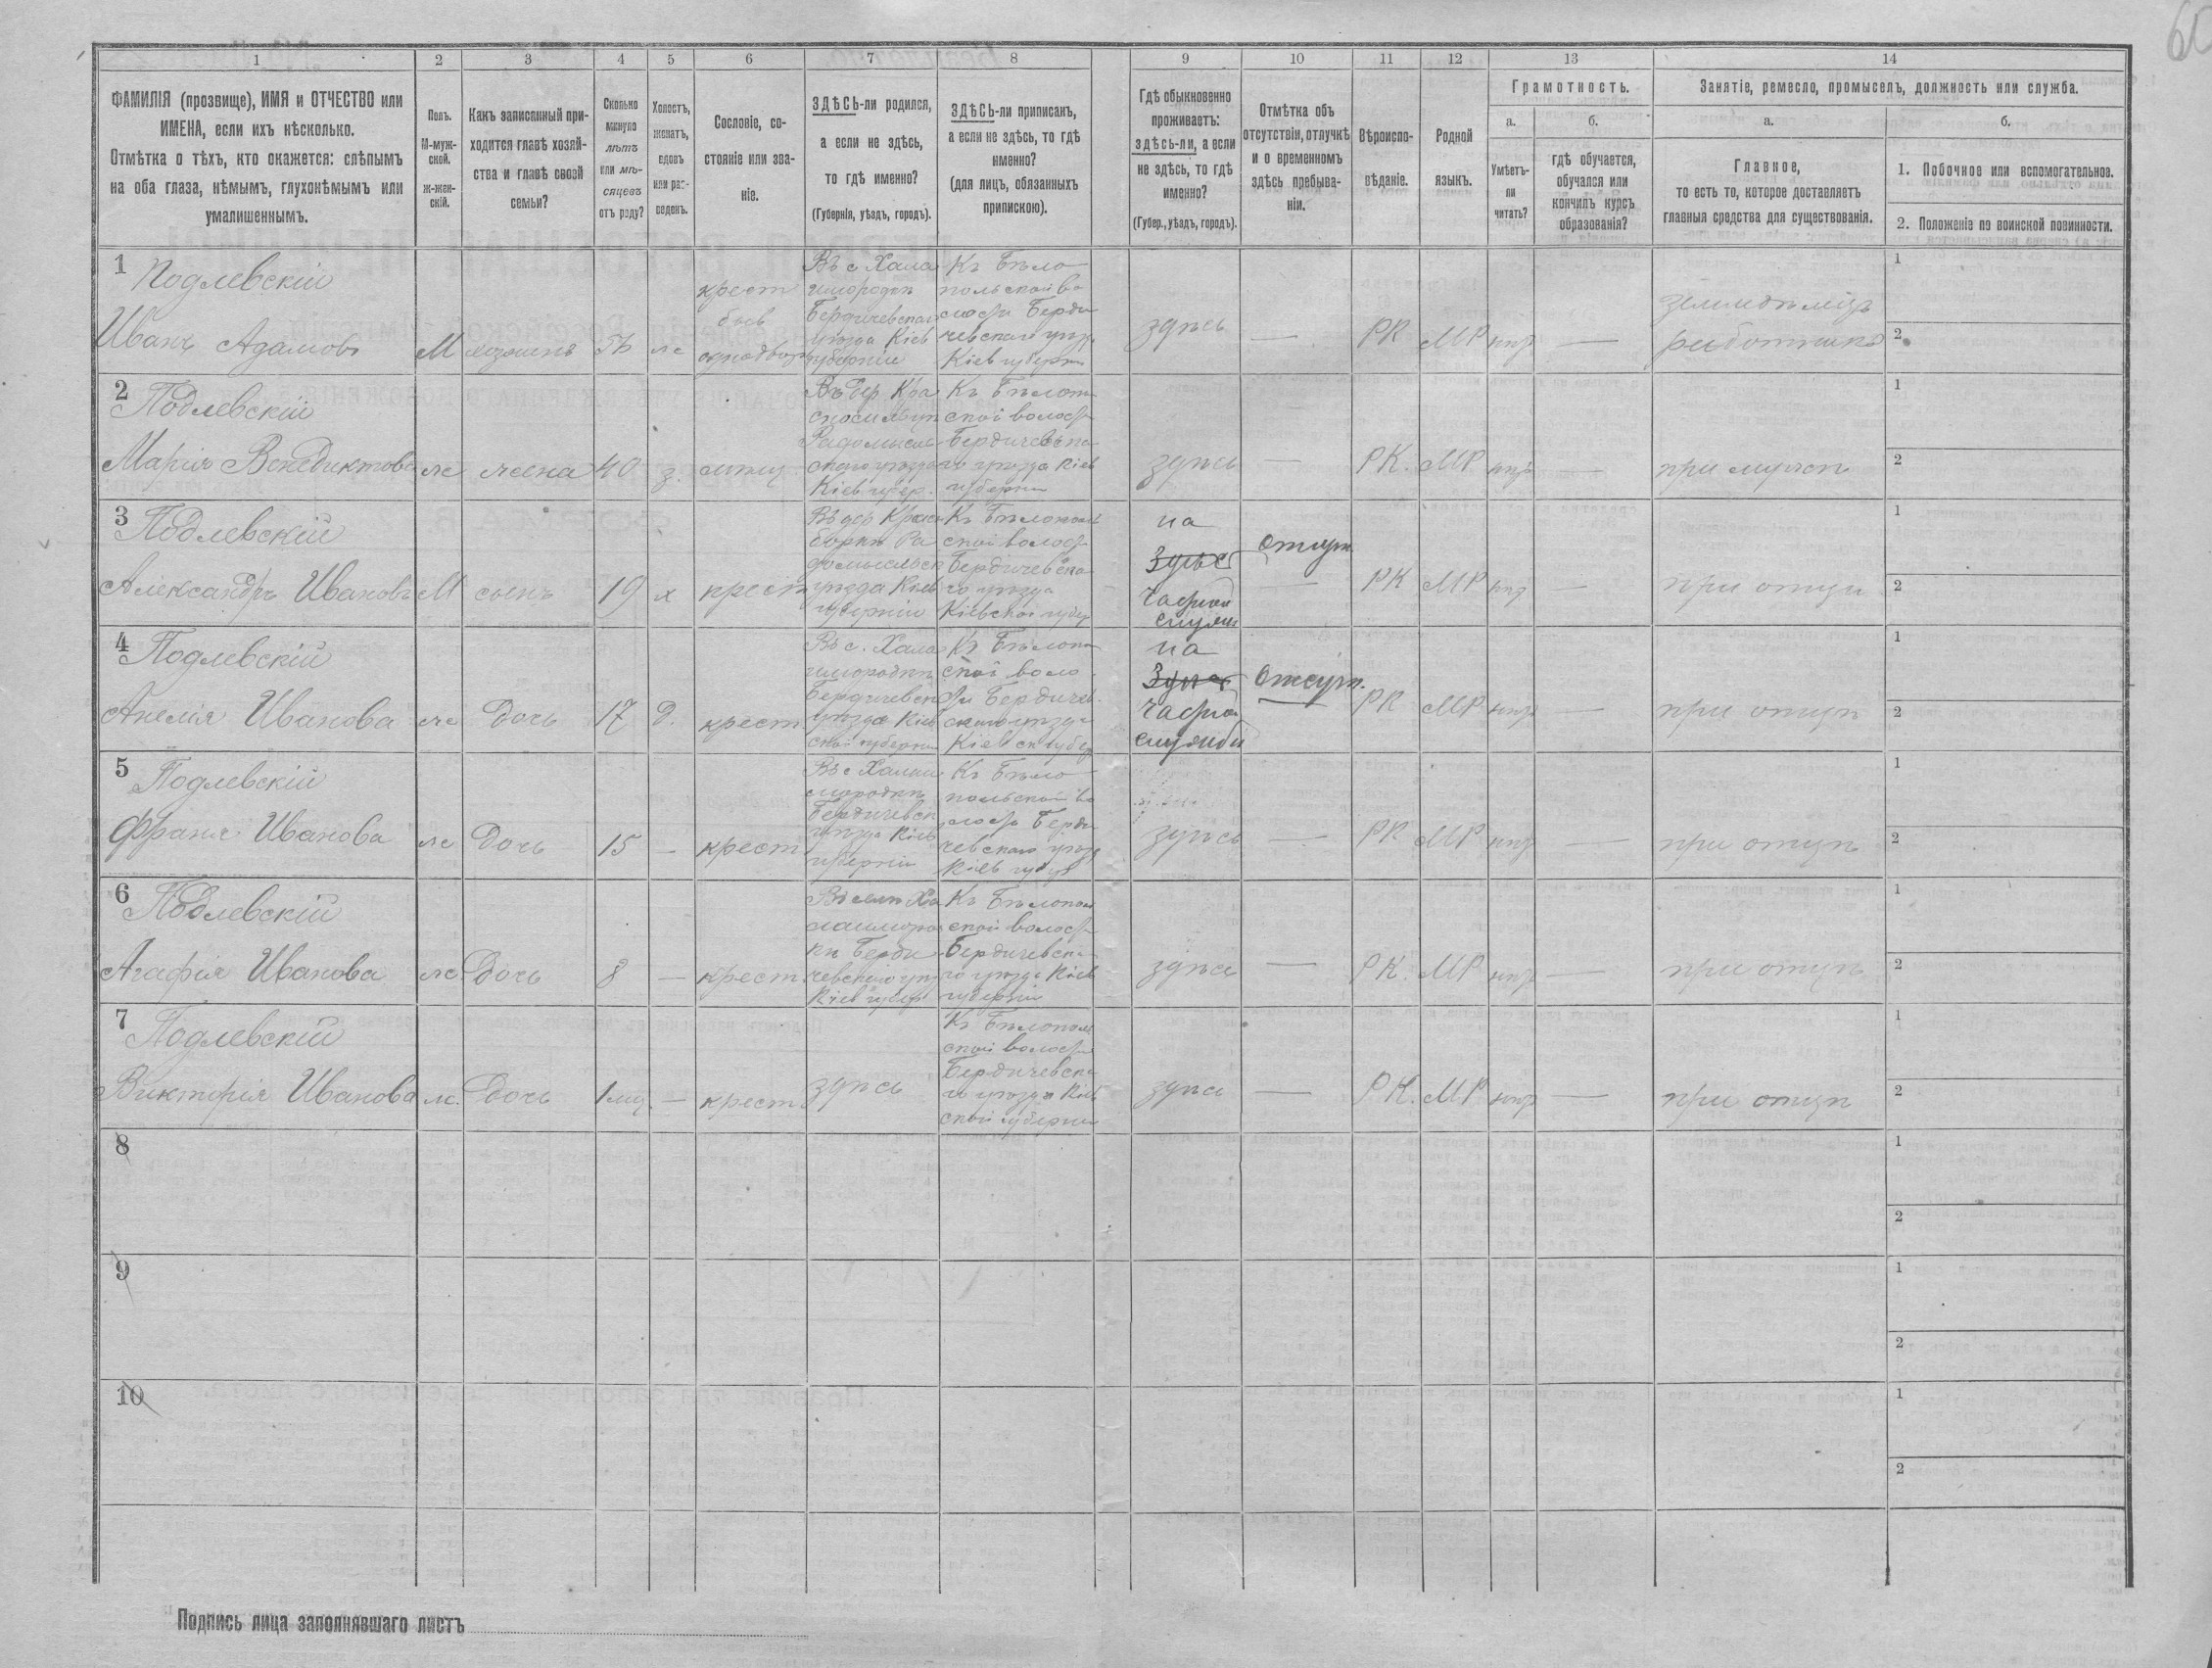 60
1 2 3 4 5 6 7 8 9 10 11 12 13 14
ФАМИЛІЯ (прозвище), ИМЯ и ОТЧЕСТВО или
ИМЕНА, если ихъ нѣсколько.
Отмѣтка о тѣхъ, кто окажется: слѣпымъ
на оба глаза, нѣмымъ, глухонѣмымъ или
умалишеннымъ.
Полъ.
М-муж-
ской.
Ж-жен-
скій.
Какъ записанный при-
ходится главѣ хозяй-
ства и главѣ своей
семьи?
Сколько
минуло
лѣтъ
или мѣ-
сяцевъ
отъ роду?
Холостъ,
женатъ,
вдовъ
или раз-
веденъ.
Сословіе, со-
стояніе или зва-
ніе.
ЗДѢСЬ-ли родился,
а если не здѣсь,
то гдѣ именно?
(Губернія, уѣздъ, городъ).
ЗДѢСЬ-ли приписанъ,
а если не здѣсь, то гдѣ
именно?
(для лицъ, обязанныхъ
припискою).
Гдѣ обыкновенно
проживаетъ:
здѣсь-ли, а если
не здѣсь, то гдѣ
именно?
(Губер., уѣздъ, городъ).
Отмѣтка объ
отсутствіи, отлучкѣ
и о временномъ
здѣсь пребыва-
ніи.
Вѣроиспо-
вѣданіе.
Родной
языкъ.
Грамотность.
а.
Умѣетъ-
ли
читать?
б.
гдѣ обучается,
обучался или
кончилъ курсъ
образованія?
Занятіе, ремесло, промыселъ, должность или служба.
а.
Главное,
то есть то, которое доставляетъ
главныя средства для существованія.
б.
1. Побочное или вспомогательное.
2. Положеніе по воинской повинности.
1 Подлевскій
Иванъ Адамовъ М хозяинъ ж
крест
бывъ
однодвор
Въ с Хала
имгородкѣ
Бердичевскаго
уѣзда Кіев
губерніи
Къ Бѣло
польской во
лости Берди
чевскаго уѣзд.
Кіев губерни
здѣсь — РК МР нѣт —
земледѣліе
работникъ
1
2
2 Подлевскій
Марія Венедиктова ж жена 40 з.
Радомысль
скаго уѣзда
Кіев губер.
Къ Бѣлопо
ской волост
Бердичевска
го уѣзда Кіев
губерни
здѣсь — РК. МР нѣт — при мужѣ
1
2
3 Подлевскій
Александръ Ивановъ М сынъ 19 х крест
Въ дер Крас
боркѣ Ра
домысльск
уѣзда Кіев
губерніи
Къ Бѣлополь
ской волост
Бердичевска
го уѣзда
Кіевской губер
на
Здѣсь
частной
службѣ
отсут.
— РК МР нѣт — при отцѣ
1
2
4 Подлевскій
Анелія Ивановa ж дочь 17 д. крест
Въ с. Хала
имгородкѣ
Бердичевск
уѣзда Кіев
ской губерни
Къ Бѣлопо
ской воло
сти Бердичев
скаго уѣзда
Кіевск губер
на
Здѣсь
частной
службѣ
Отсут.
РК МР нѣт — при отцѣ
1
2
5 Подлевскій
Франя Иванова ж дочь 15 — крест
Въ с Халаи
мгородкѣ
Бердичевск
уѣзда Кіев
губерніи
Къ Бѣло
польской во
лости Берди
чевскаго уѣзд
Кіев губер
здѣсь — РК МР нѣт — при отцѣ
1
2
6 Подлевскій
Агафія Иванова ж дочь 8 — крест
Въ селѣ Ха
лаимгород
кѣ Берди
чевскаго уѣз
Кіев губер
Къ Бѣлопол
ской волост
Бердичевска
го уѣзда Кіев
губерніи
здѣсь — РК. МР нѣт — при отцѣ
1
2
7 Подлевскій
Викторія Иванова ж. дочь 1 мѣс. — крест здѣсь
Къ Бѣлополь
ской волости
Бердичевска
го уѣзда Кіев
ской губерни
здѣсь — РК. МР нѣт — при отцѣ
1
2
8
1
2
9
1
2
10
1
2
Подпись лица заполнявшаго листъ